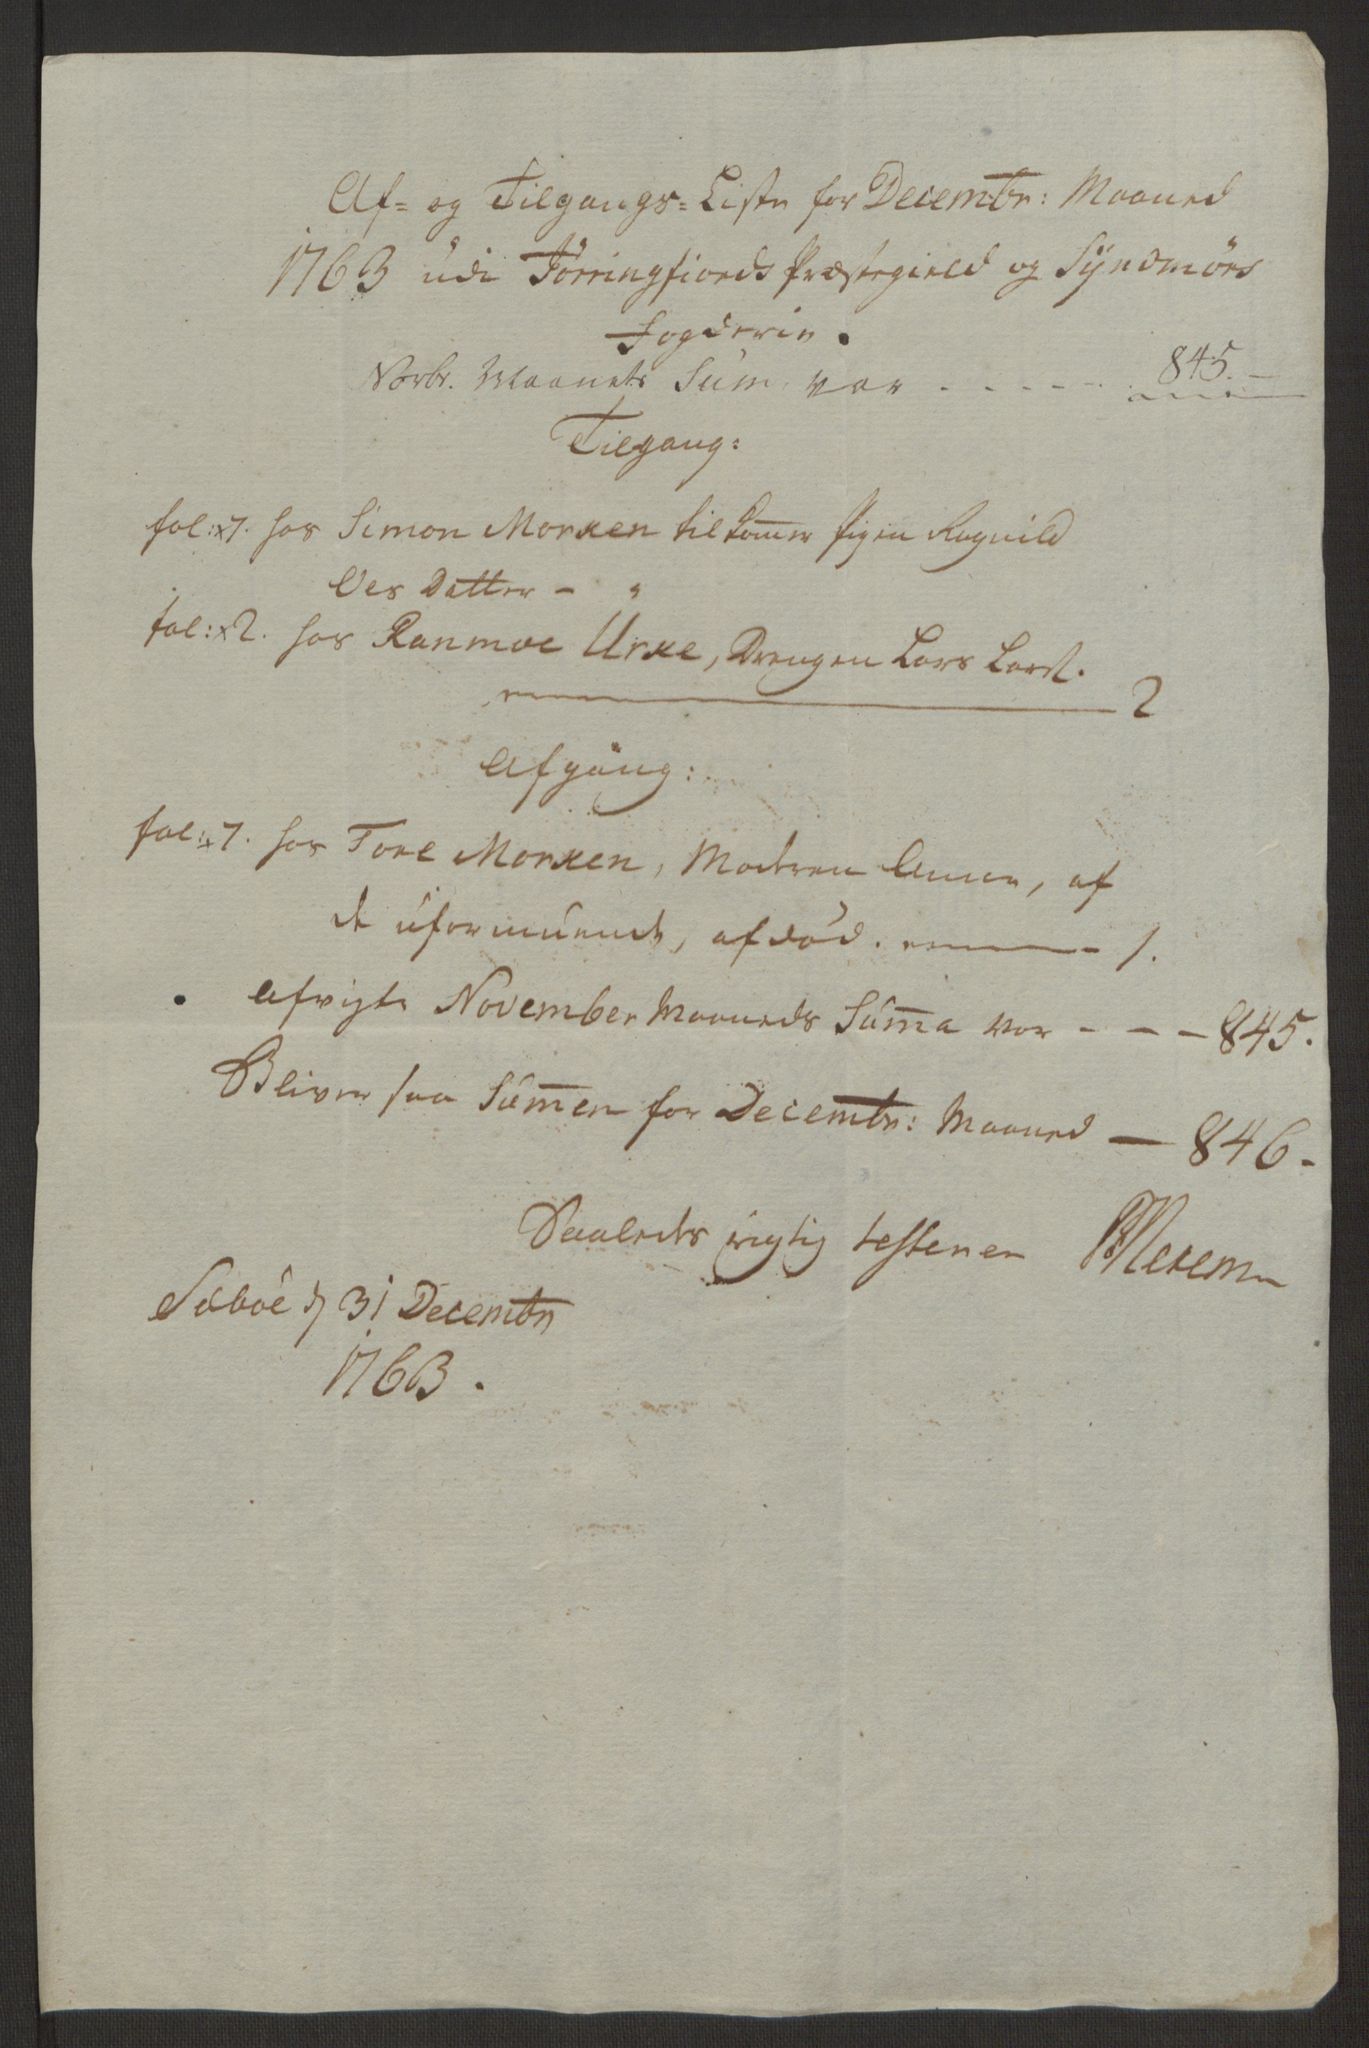 Af- og Tilgangs-Liste for Decembr: Maaned
1763 udi Jörringfiords Præstegield og Syndmörs
Fogderie.
Novbr. Maanets Sum var - - - - - 845.
Tilgang:
fol: 7. hos Simon Morken tilkom̄er Pigen Ragnild
Oles Datter -
fol: 2. hos Ranmoe Urke, Drengen Lars Lars S.
2
Afgang:
fol: 7. hos Tore Morken, Moderen Anne, af
de uformuende, afdöd. 1.
Afvigte November Maaneds Sum̄a var - - - 845.
Bliver saa Sum̄en for Decembr: Maaned — 846.
Saaledes rigtig testerer
Sæböe d 31 Decembr
1763.